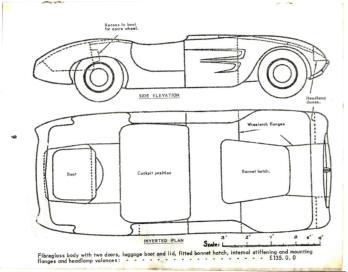 Recess in boot
for spare wheel.
SIDE ELEVATION
Headlamp
domes.
Wheelarch flanges
Boot
Cockpit position
Bonnet hatch.
INVERTED PLAN
Scale:
Fibreglass body with two doors, luggage boot and lid, fitted bonnet hatch, internal stiffening and mounting
flanges and headlamp valances: - - - - - - - - - - - - - - - £135. 0. 0